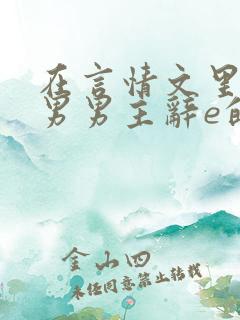 在言情文里
男男主辭e的
金山四
未经同意禁止转载